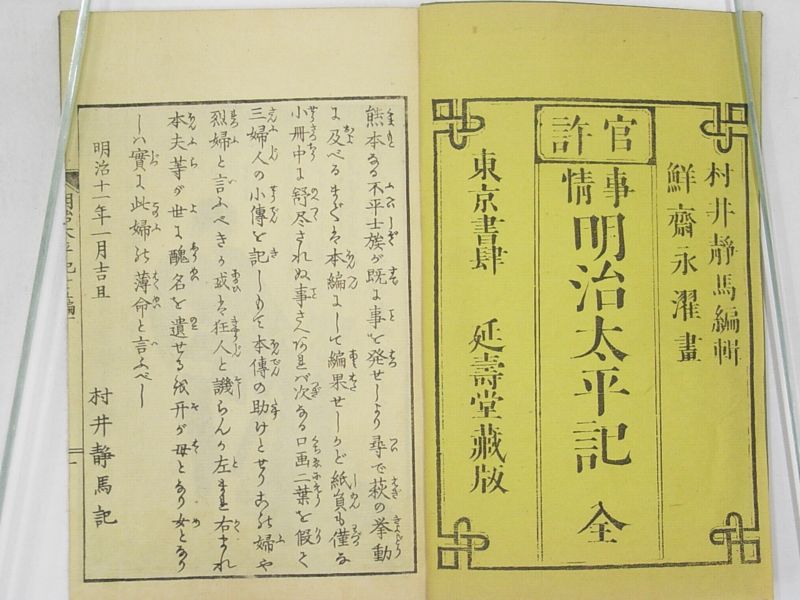 官許
村井靜馬編輯
鮮齋永濯畫
事情 明治太平記 全
東京書肆 延壽堂藏版
熊本なる不平士族が既に事を発せしより尋で萩の挙動
に及べるまでは本編にして編果せしかど紙員も僅なる
小冊中に
三婦人の小傳を記しもて本傳の助けとせりこの婦や
烈婦と言ふべきか或は狂人と譏らんか左まれ右まれ
本夫等が世に醜名を遺せる
しは實に此婦の薄命と言ふべし
明治十一年一月吉旦
村井靜馬記